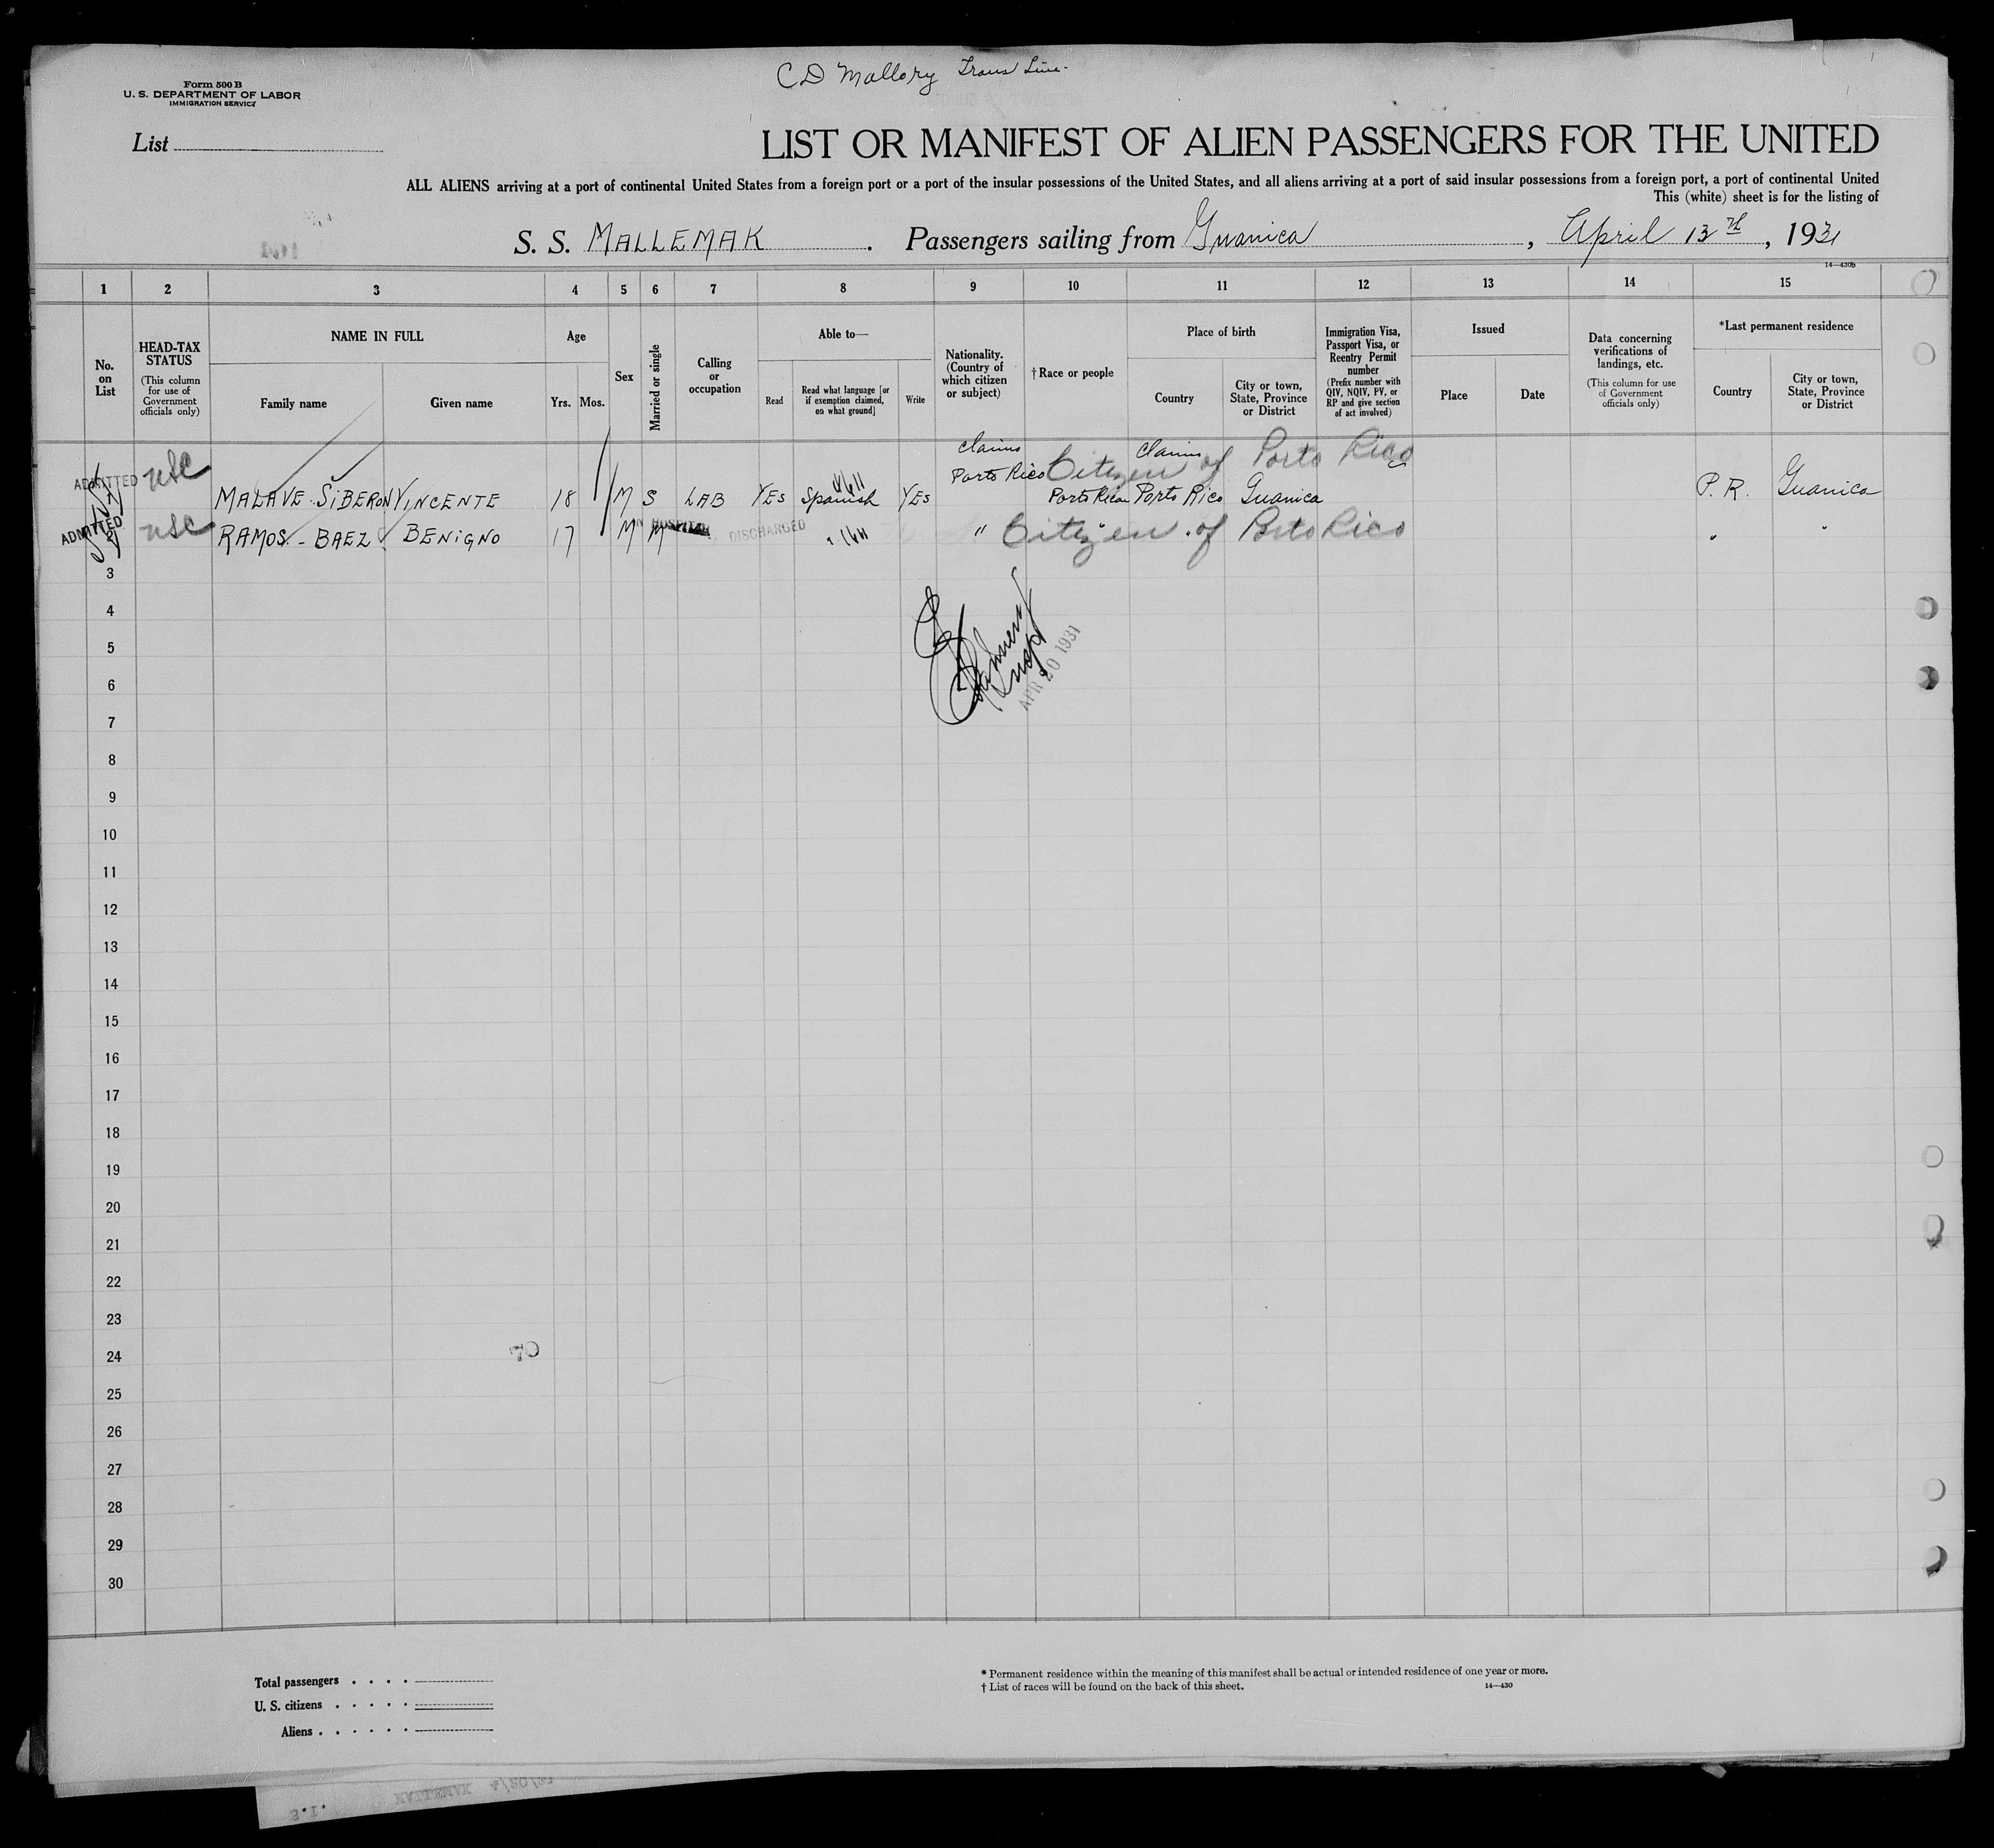 C D Mallory Trans Line.
Form 500 B
U. S. DEPARTMENT OF LABOR
IMMIGRATION SERVICE
List
LIST OR MANIFEST OF ALIEN PASSENGERS FOR THE UNITED
ALL ALIENS arriving at a port of continental United States from a foreign port or a port of the insular possessions of the United States, and all aliens arriving at a port of said insular possessions from a foreign port, a port of continental United
This (white) sheet is for the listing of
S. S. MALLEMAK . Passengers sailing from Guanica , April 13th , 1931
14—430B
1 2 3 4 5 6 7 8 9 10 11 12 13 14 15
No. on List
HEAD-TAX STATUS
(This column for use of Government officials only)
NAME IN FULL
Family name Given name
Age
Yrs. Mos.
Sex
Married or single
Calling or occupation
Able to—
Read
Read what language [or if exemption claimed, on what ground]
Write
Nationality. (Country of which citizen or subject)
† Race or people
Place of birth
Country
City or town, State, Province or District
Immigration Visa, Passport Visa, or Reentry Permit number
(Prefix number with QIV, NQIV, PV, or RP and give section of act involved)
Issued
Place Date
Data concerning verifications of landings, etc.
(This column for use of Government officials only)
*Last permanent residence
Country
City or town, State, Province or District
claims claims
Citizen of Porto Rico
ADMITTED USC MALAVE-SIBERON VINCENTE 18 M S LAB YES Spanish YES Porto Rico Porto Rican Porto Rico Guanica P. R. Guanica
ADMITTED USC RAMOS-BAEZ BENIGNO 17 M M IN HOSPITAL DISCHARGED " " Citizen of Porto Rico " "
3
4
5
6
APR 20 1931
7
8
9
10
11
12
13
14
15
16
17
18
19
20
21
22
23
24
25
26
27
28
29
30
Total passengers
U. S. citizens
Aliens
* Permanent residence within the meaning of this manifest shall be actual or intended residence of one year or more.
† List of races will be found on the back of this sheet.
14—430
S.I. MALLEMAK 4/20/31